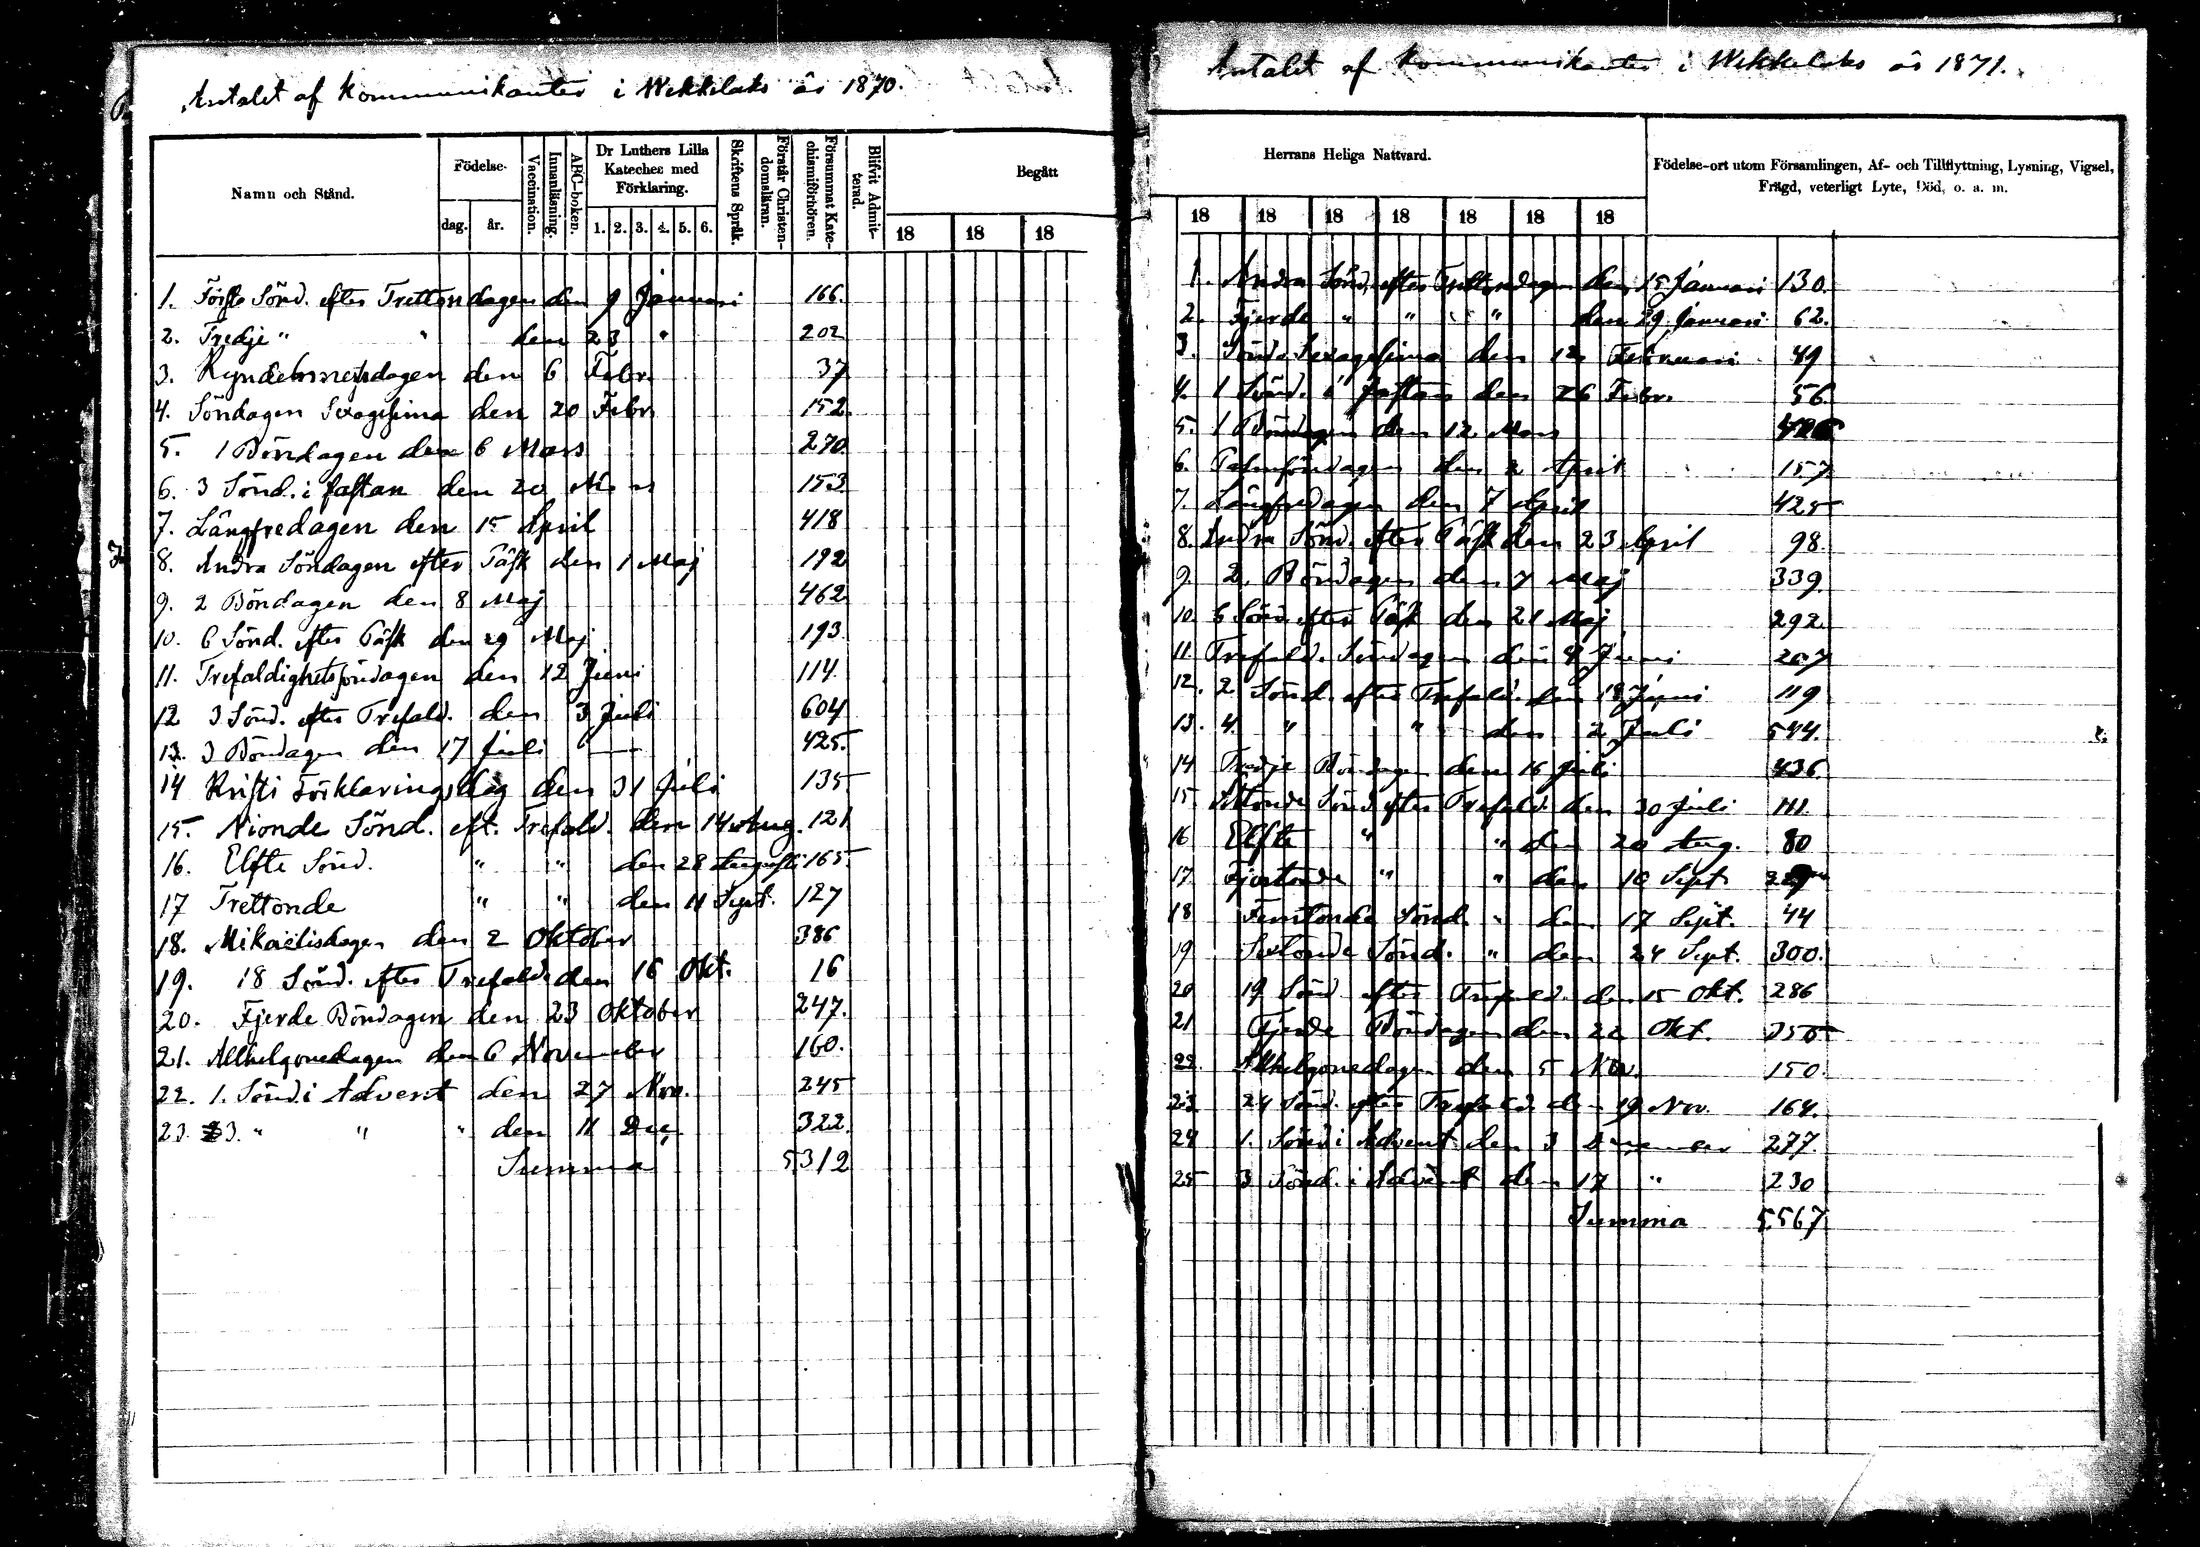 Antalet af Kommunikanter i Wekkelaks år 1870.
Namn och Stånd.
Födelse-
dag.
år.
Vaccination.
Innanläsning.
ABC-boken.
Dr Luthers Lilla
Kateches med
Förklaring.
1. 2. 3. 4. 5. 6.
Skriftens Språk.
Förstår Christen-
domsläran.
Försummat Kate-
chismiförhören.
Blifvit Admit-
terad.
Begått
18 18 18
1. Förste Sönd. efter Trettondagen den 9 Januari 166.
2. Tredje " " den 23 " 202
3. Kyndelsmessdagen den 6 Febr. 37
4. Söndagen Sexagesima den 20 Febr 152
5. 1 Böndagen den 6 Mars 270
6. 3 Sönd. i fastan den 20 Mars 153
7. Långfredagen den 15 April 418
8. Andra Söndagen efter Påsk den 1 Maj 192
9. 2 Böndagen den 8 Maj 462
10. 6 Sönd. efter Påsk den 29 Maj 193.
11. Trefaldighetssöndagen den 12 Juni 114.
12 3 Sönd. efter Trefald. den 3 Juli 604
13. 3 Böndagen den 17 Juli 425.
14 Kristi Förklaringsdag den 31 Juli 135
15. Nionde Sönd. eft. Trefald. den 14 Aug. 121
16. Elfte Sönd. " " den 28 Augusti 165.
17 Trettonde " " den 11 Sept. 127
18. Mikaëlisdagen den 2 Oktober 386
19. 18 Sönd. efter Trefald. den 16 Okt. 16
20. Fjerde Böndagen den 23 Oktober 247.
21. Allhelgonedagen den 6 November 160.
22. 1. Sönd. i Advent den 27 Nov. 245
23. 3. " " " den 11 Dec 322.
Summa 5312
Antalet af Kommunikanter i Wekkelaks år 1871.
Herrans Heliga Nattvard.
Födelse-ort utom Församlingen, Af- och Tillflyttning, Lysning, Vigsel,
Frägd, veterligt Lyte, Död, o. a. m.
18 18 18 18 18 18 18
1. Andra Sönd. efter Trettondagen den 15 Januari 130.
2. Fjerde " " " den 29 Januari 62.
3. Sönd. Sexagesima den 12 Februari 49
4. 1 Sönd. i Fastan den 26 Febr. 56
5. 1 Böndagen den 12 Mars
6. Palmsöndagen den 2 April 157
7. Långfredagen den 7 April 425
8. Andra Sönd. efter Påsk den 23 April 98.
9 2. Böndagen den 7 Maj 339.
10. 6 Sönd. efter Påsk den 21 Maj 292.
11. Trefald. Söndagen den 4 Juni 207
12. 2 Sönd. efter Trefald. den 18 Juni 119
13. 4. " " den 2 Juli 544.
14 Tredje Böndagen den 16 Juli 436
15. Åttonde Sönd. efter Trefald. den 30 Juli 111.
16 Elfte " " den 20 Aug. 80
17. Fjortonde " " den 10 Sept
18 Femtonde Sönd. " den 17 Sept. 44
19 Sextonde Sönd. " den 24 Sept. 300.
20 19 Sönd efter Trefald. den 15 Okt. 286
21 Fjerde Böndagen den 22 Okt. 355
22 Allhelgonedagen den 5 Nov. 150.
23 24 Sönd. efter Trefald. den 19 Nov. 164.
24 1. Sönd i Advent den 3 December 277.
25 3 Sönd. i Advent den 17 " 230
Summa 5567